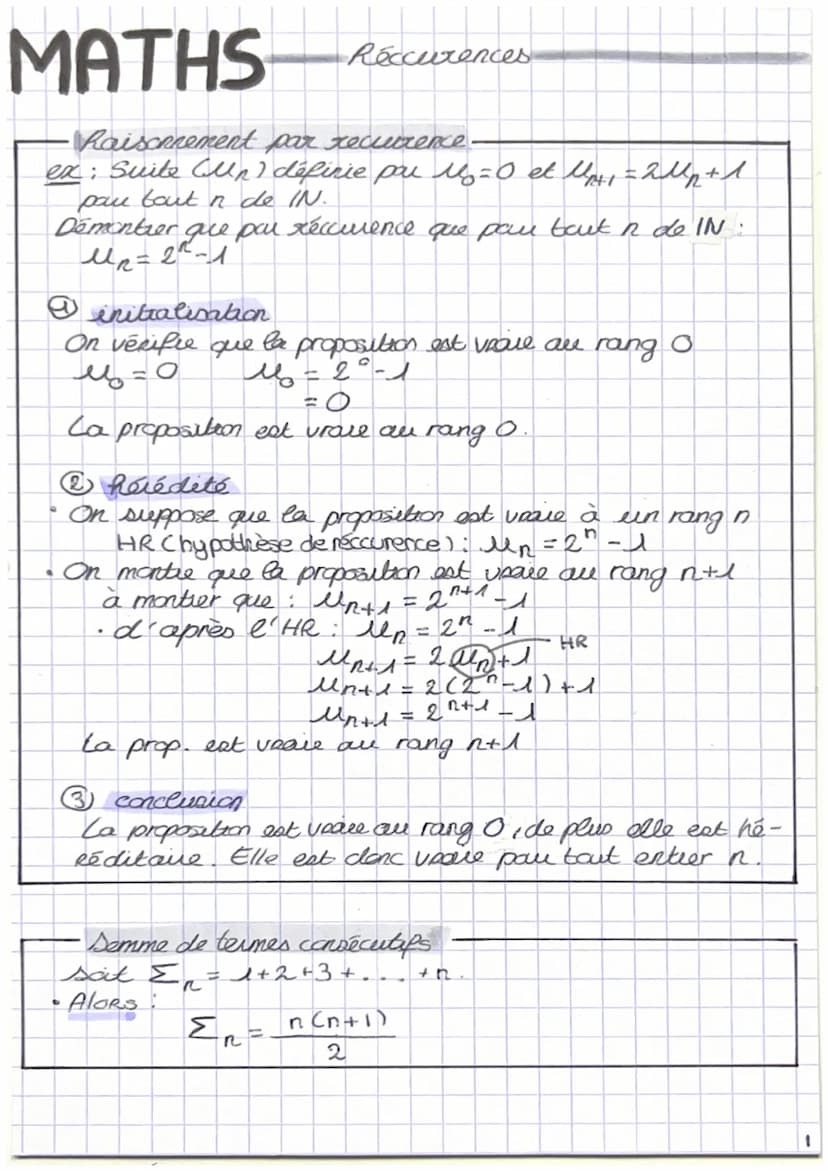 MATHS Réccurences
Raisonnement par recurrence
ex : Suite (Un) définie par U₀=0 et Uₙ₊₁ = 2Uₙ+1
pour tout n de IN.
Démontrer que par réccurence que pour tout n de IN :
Uₙ = 2ⁿ-1
① initialisation
On vérifie que la proposition est vraie au rang 0
U₀ = 0 U₀ = 2⁰-1
= 0
La proposition est vraie au rang 0.
② hérédité
• On suppose que la proposition est vraie à un rang n
HR (hypothèse de réccurence) : Uₙ = 2ⁿ - 1
• On montre que la proposition est vraie au rang n+1
à montrer que : Uₙ₊₁ = 2ⁿ⁺¹ - 1
• d'après l'HR : Uₙ = 2ⁿ - 1
Uₙ₊₁ = 2Uₙ+1 HR
Uₙ₊₁ = 2(2ⁿ-1)+1
Uₙ₊₁ = 2ⁿ⁺¹ - 1
La prop. est vraie au rang n+1
③ conclusion
La proposition est vraie au rang 0, de plus elle est hé-
réditaire. Elle est donc vraie pour tout entier n.
Somme de termes consécutifs
soit Σₙ = 1+2+3+... +n.
• Alors :
Σₙ = n(n+1)
2
1